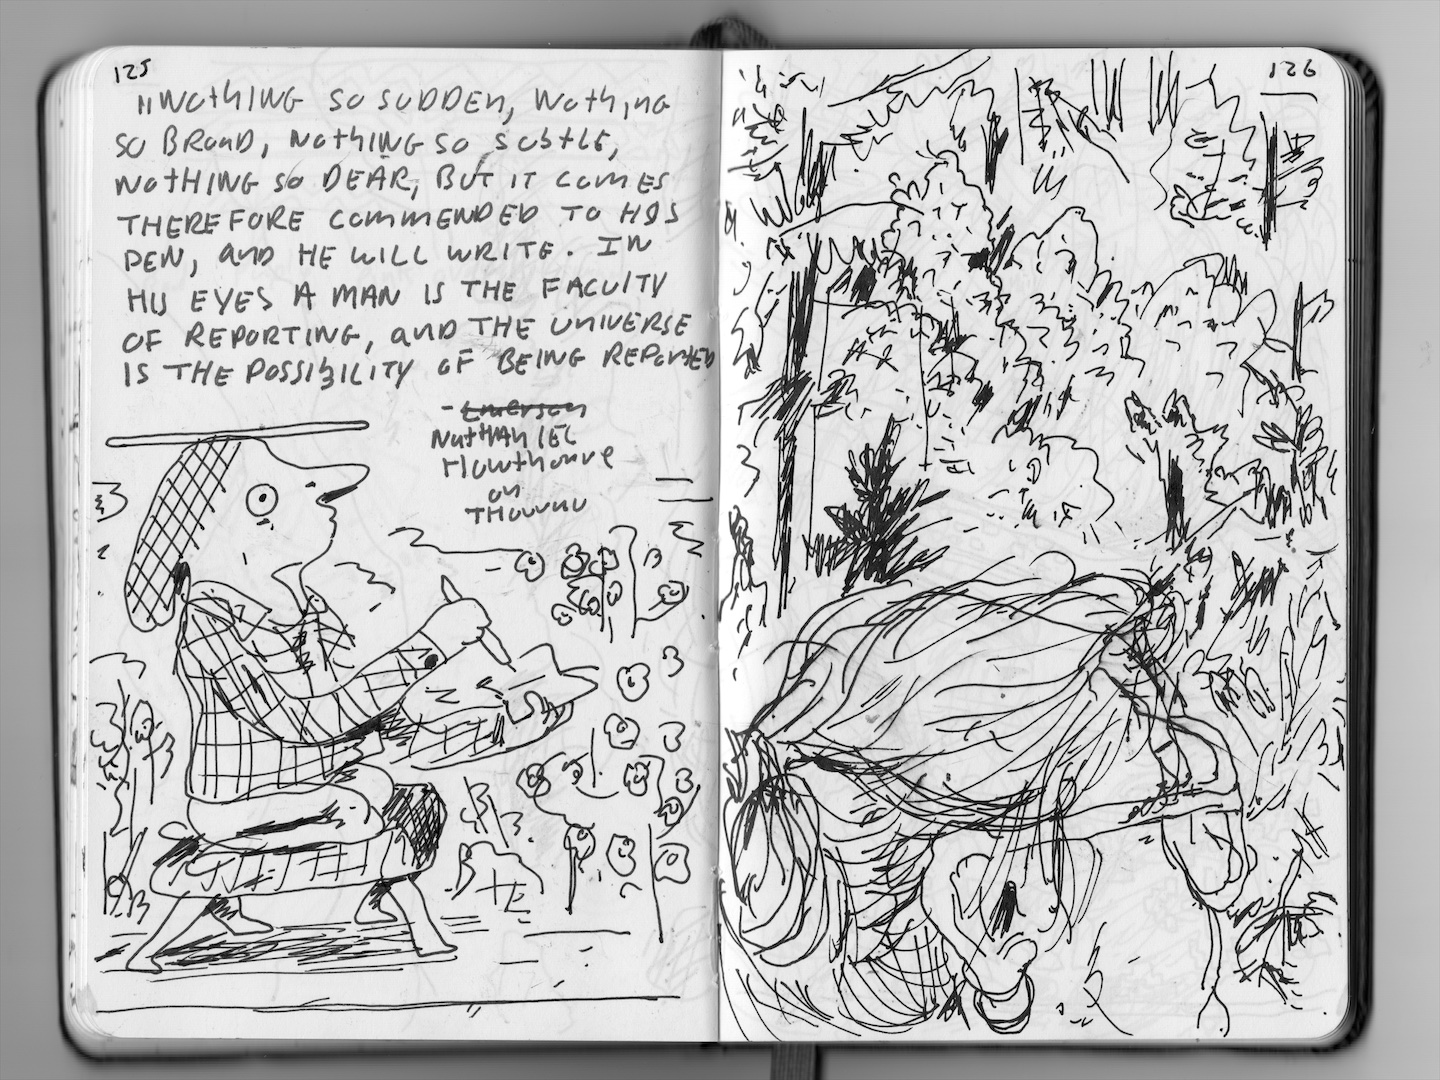 125
"NOTHING SO SUDDEN, NOTHING
SO BROAD, NOTHING SO SUBTLE,
NOTHING SO DEAR, BUT IT COMES
THEREFORE COMMENDED TO HIS
PEN, AND HE WILL WRITE. IN
HIS EYES A MAN IS THE FACULTY
OF REPORTING, AND THE UNIVERSE
IS THE POSSIBILITY OF BEING REPORTED
- Emerson
NATHANIEL
Hawthorne
on
THOREAU
126